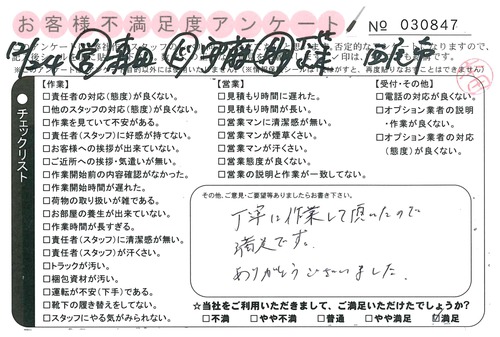 お客様不満足度アンケート
№ 030847
チェックリスト
【作業】
□責任者の対応(態度)が良くない。
□他のスタッフの対応(態度)が良くない。
□作業を見ていて不安がある。
□責任者(スタッフ)に好感が持てない。
□お客様への挨拶が出来ていない。
□ご近所への挨拶・気遣いが無い。
□作業開始前の内容確認がなかった。
□作業開始時間が遅れた。
□荷物の取り扱いが雑である。
□お部屋の養生が出来ていない。
□作業時間が長すぎる。
□責任者(スタッフ)に清潔感が無い。
□責任者(スタッフ)が汗くさい。
□トラックが汚い。
□梱包資材が汚い。
□運転が不安(下手)である。
□靴下の履き替えをしてない。
□スタッフにやる気がみられない。
【営業】
□見積もり時間に遅れた。
□見積もり時間が長い。
□営業マンに清潔感が無い。
□営業マンが煙草くさい。
□営業マンが汗くさい。
□営業態度が良くない。
□営業の説明と作業が一致してない。
【受付・その他】
□電話の対応が良くない。
□オプション業者の説明
・作業が良くない。
□オプション業者の対応
(態度)が良くない。
その他、ご意見・ご要望等ありましたらお書き下さい。
丁寧に作業して頂いたので
満足です。
ありがとうございました。
☆当社をご利用いただきまして、ご満足いただけたでしょうか?
□不満 □やや不満 □普通 □やや満足 ☑満足